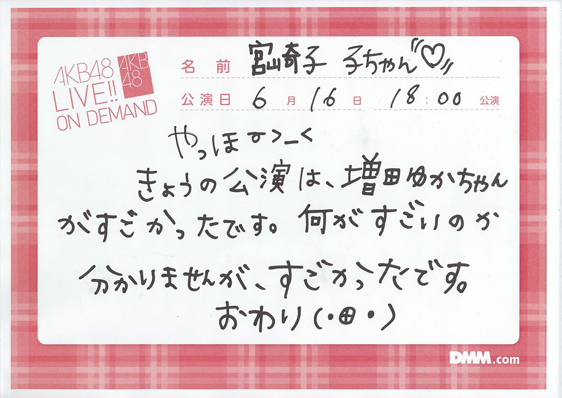 AKB48
LIVE!!
ON DEMAND
AKB
48
名 前 宮崎子 子ちゃん"♡"
公演日 6 月 16 日 18:00 公演
やっほーーく
きょうの公演は、増田ゆかちゃん
がすごかったです。何がすごいのか
分かりませんが、すごかったです。
おわり(・田・)
DMM.com